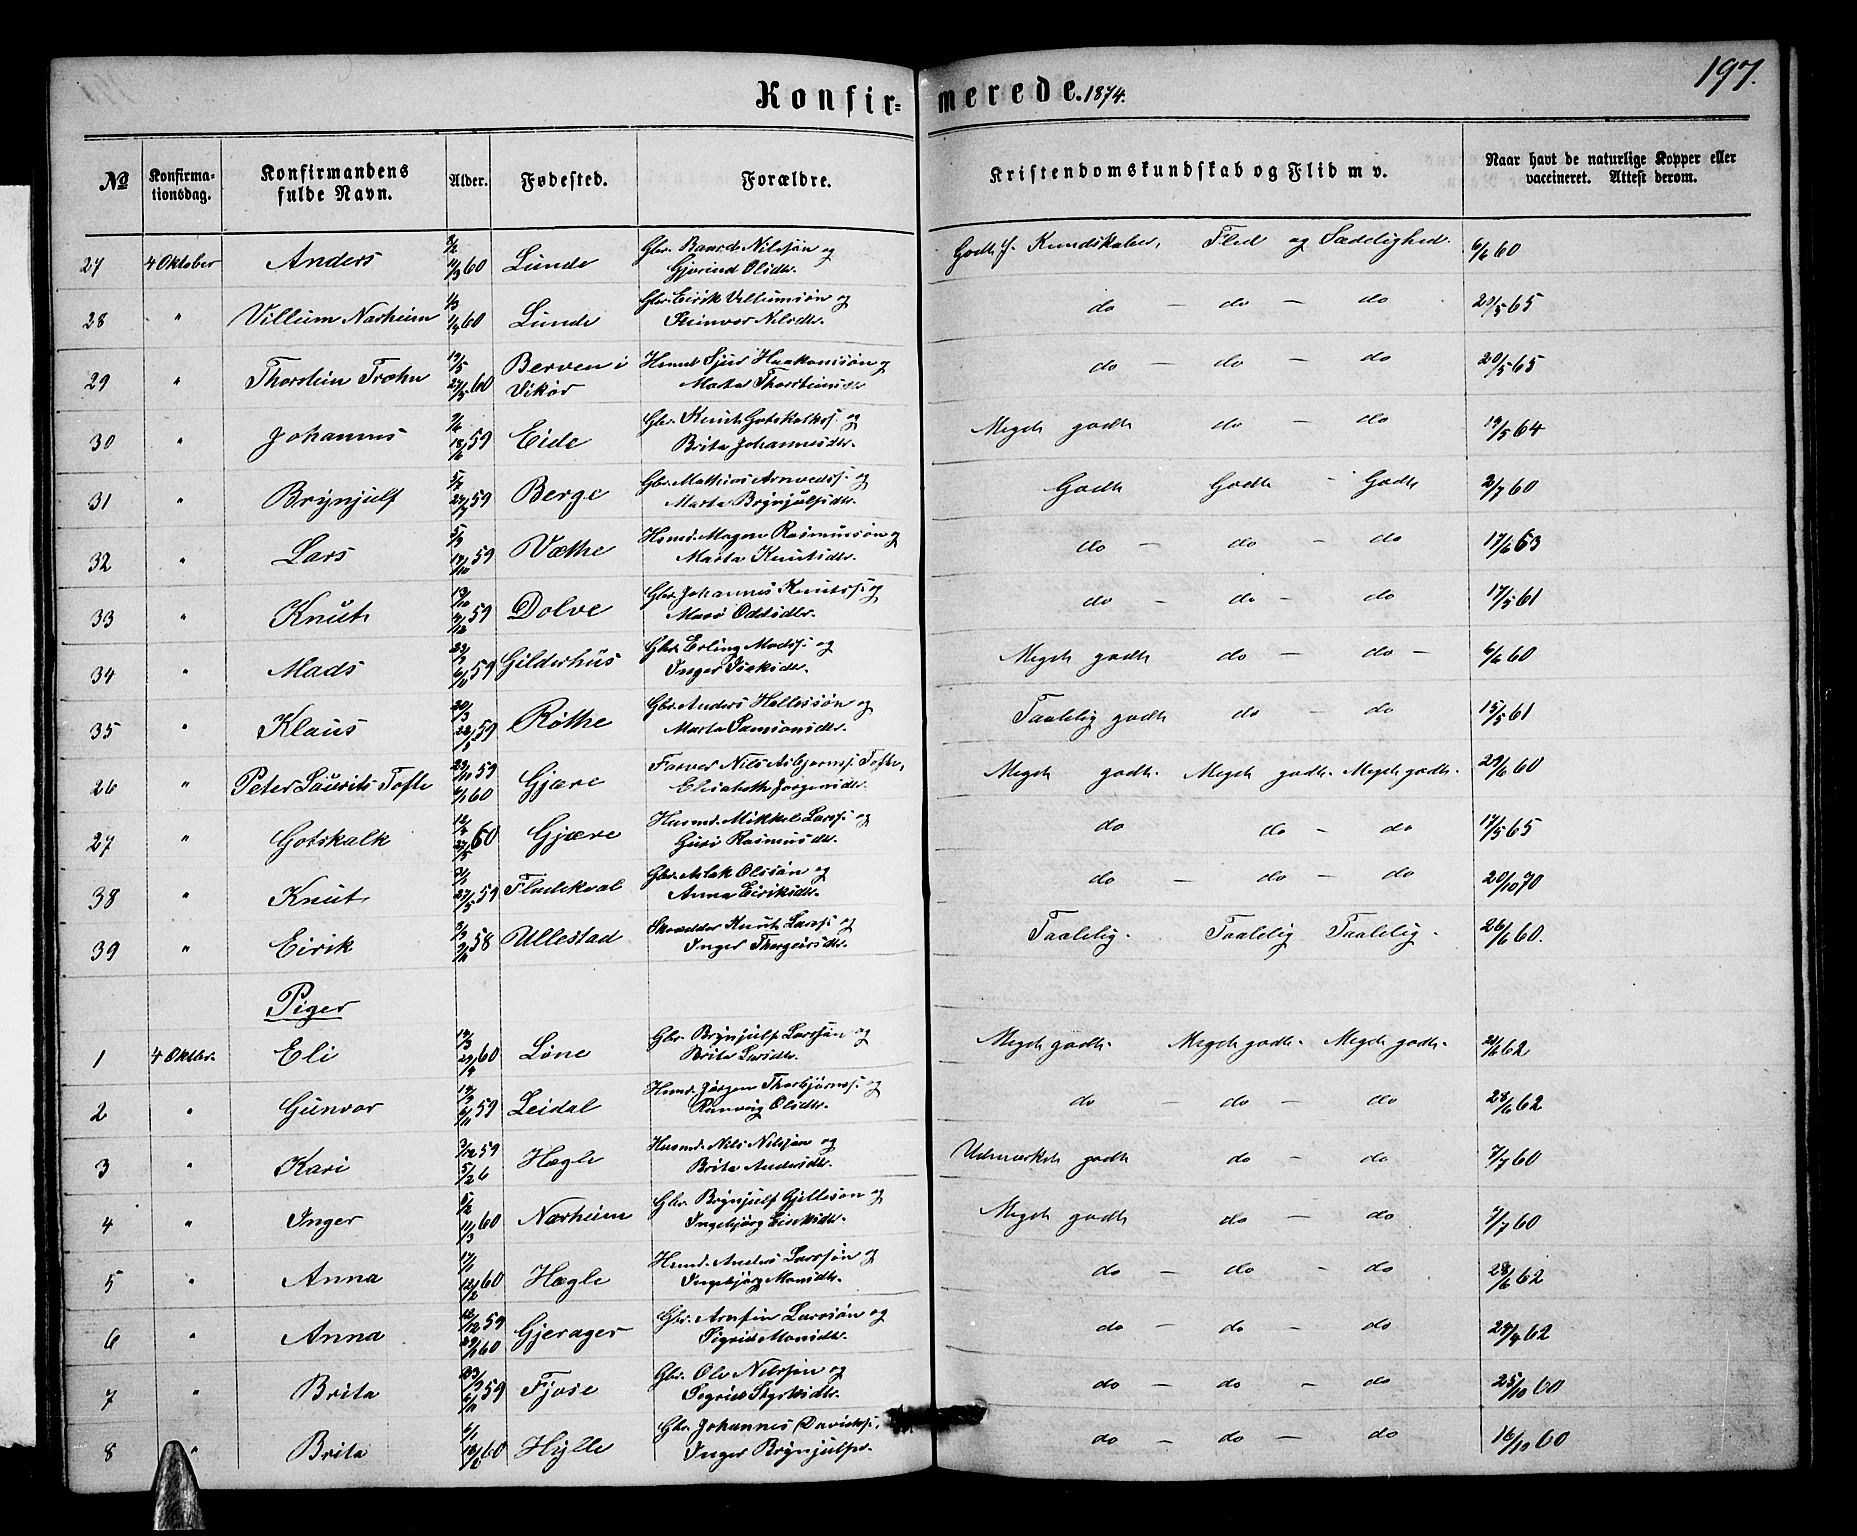 197.
Konfir= merede. 1874.
No Konfirma-tionsdag. Konfirmandens fulde Navn. Alder. Fødested. Forældre. Kristendomskundskab og Flid m v. Naar havt de naturlige Kopper eller vaccineret. Attest derom.
27 4 Oktober Anders 60 Lunde Gbr. Baard Nilssøn og Gjørind Olsdtr. Godt f. Kundskaber, Flid og Sædelighed. 6/6 60
28 " Villum Nærheim 60 Lunde Gbr. Eirik Villumsøn og Steinvor Nilsdtr. do – do – do 20/5 65
29 " Thorstein Træhn 60 Berven i Vikør Husmd. Sjur Haakonssøn og Marta Thorsteinsdtr. do – do – do 20/5 65
30 " Johannes 59 Eide Gbr. Knut Gotskalks. og Brita Johannesdtr. Meget godt do – do 19/5 64
31 " Brynjulf 59 Berge Gbr. Mathias Arnveds. og Marta Brynjulfsdtr. Godt Godt – Godt 2/7 60
32 " Lars 59 Væthe Husmd. Mogen Rasmussøn og Marta Knutsdtr. do – do – do 17/6 63
33 " Knut 59 Dolve Gbr. Johannes Knutss. og Marø Oddsdtr. do – do – do 17/5 61
34 " Mads 59 Gilderhus Gbr. Erling Madss. og Inger Isaksdtr. Meget godt do – do – 6/6 60
35 " Klaus 59 Røthe Gbr. Anders Hellessøn og Marta Samsonsdtr. Taalelig godt do – do 15/5 61
26 " Peter Laurits Tofte 59 60 Gjære Farver Nils Asbjørns. Tofte, Elisabeth Jørgensdtr. Meget godt. Meget godt. Meget godt. 29/6 60
27 " Gotskalk 60 Gjære Husmd. Mikkel Larss. og Guri Rasmusdtr. do do – do 17/5 65
38 " Knut 59 Fladekval Gbr. Aslak Olssøn og Anna Eiriksdtr. do – do – do 20/10 70
39 " Eirik 58 Ullestad Skrædder Knut Larss. og Inger Thorgersdtr. Taalelig. Taalelig Taalelig. 26/6 60.
Piger
1 4 Oktbr. Eli 60 Løne Gbr. Brynjulf Larssøn og Brita Larsdtr. Meget godt. Meget godt. Meget godt. 62
2 " Gunvor 59 Leidal Husmd. Jørgen Thorbjørns. og Ranveig Olsdtr. do – do – do 28/6 62
3 " Kari 3/12 59 5/2 6 Hægle Husmd. Nils Nilssøn og Brita Andersdtr. Udmærket godt do – do 7/7 60
4 " Inger 5/2 11/3 60 Nærheim Gbr. Brynjulf Gjellesøn og Ingebjørg Eiriksdtr. Meget godt do – do 7/7 60
5 " Anna 17/1 12/2 60 Hægle Husmd. Anders Larssøn og Ingebjørg Monsdtr. do – do – do 28/6 62
6 " Anna 59 60 Gjerager Gbr. Arnfin Larssøn og Sigrid Monsdtr. do – do – do 62
7 " Brita 59 Fjose Gbr. Ole Nilssøn og Sigrid Styrksdtr. do – do – do 25/10 60
8 " Brita 60 Hylle Gbr. Johannes Davids. Inger Brynjulfsr. do – do – do 16/10 60